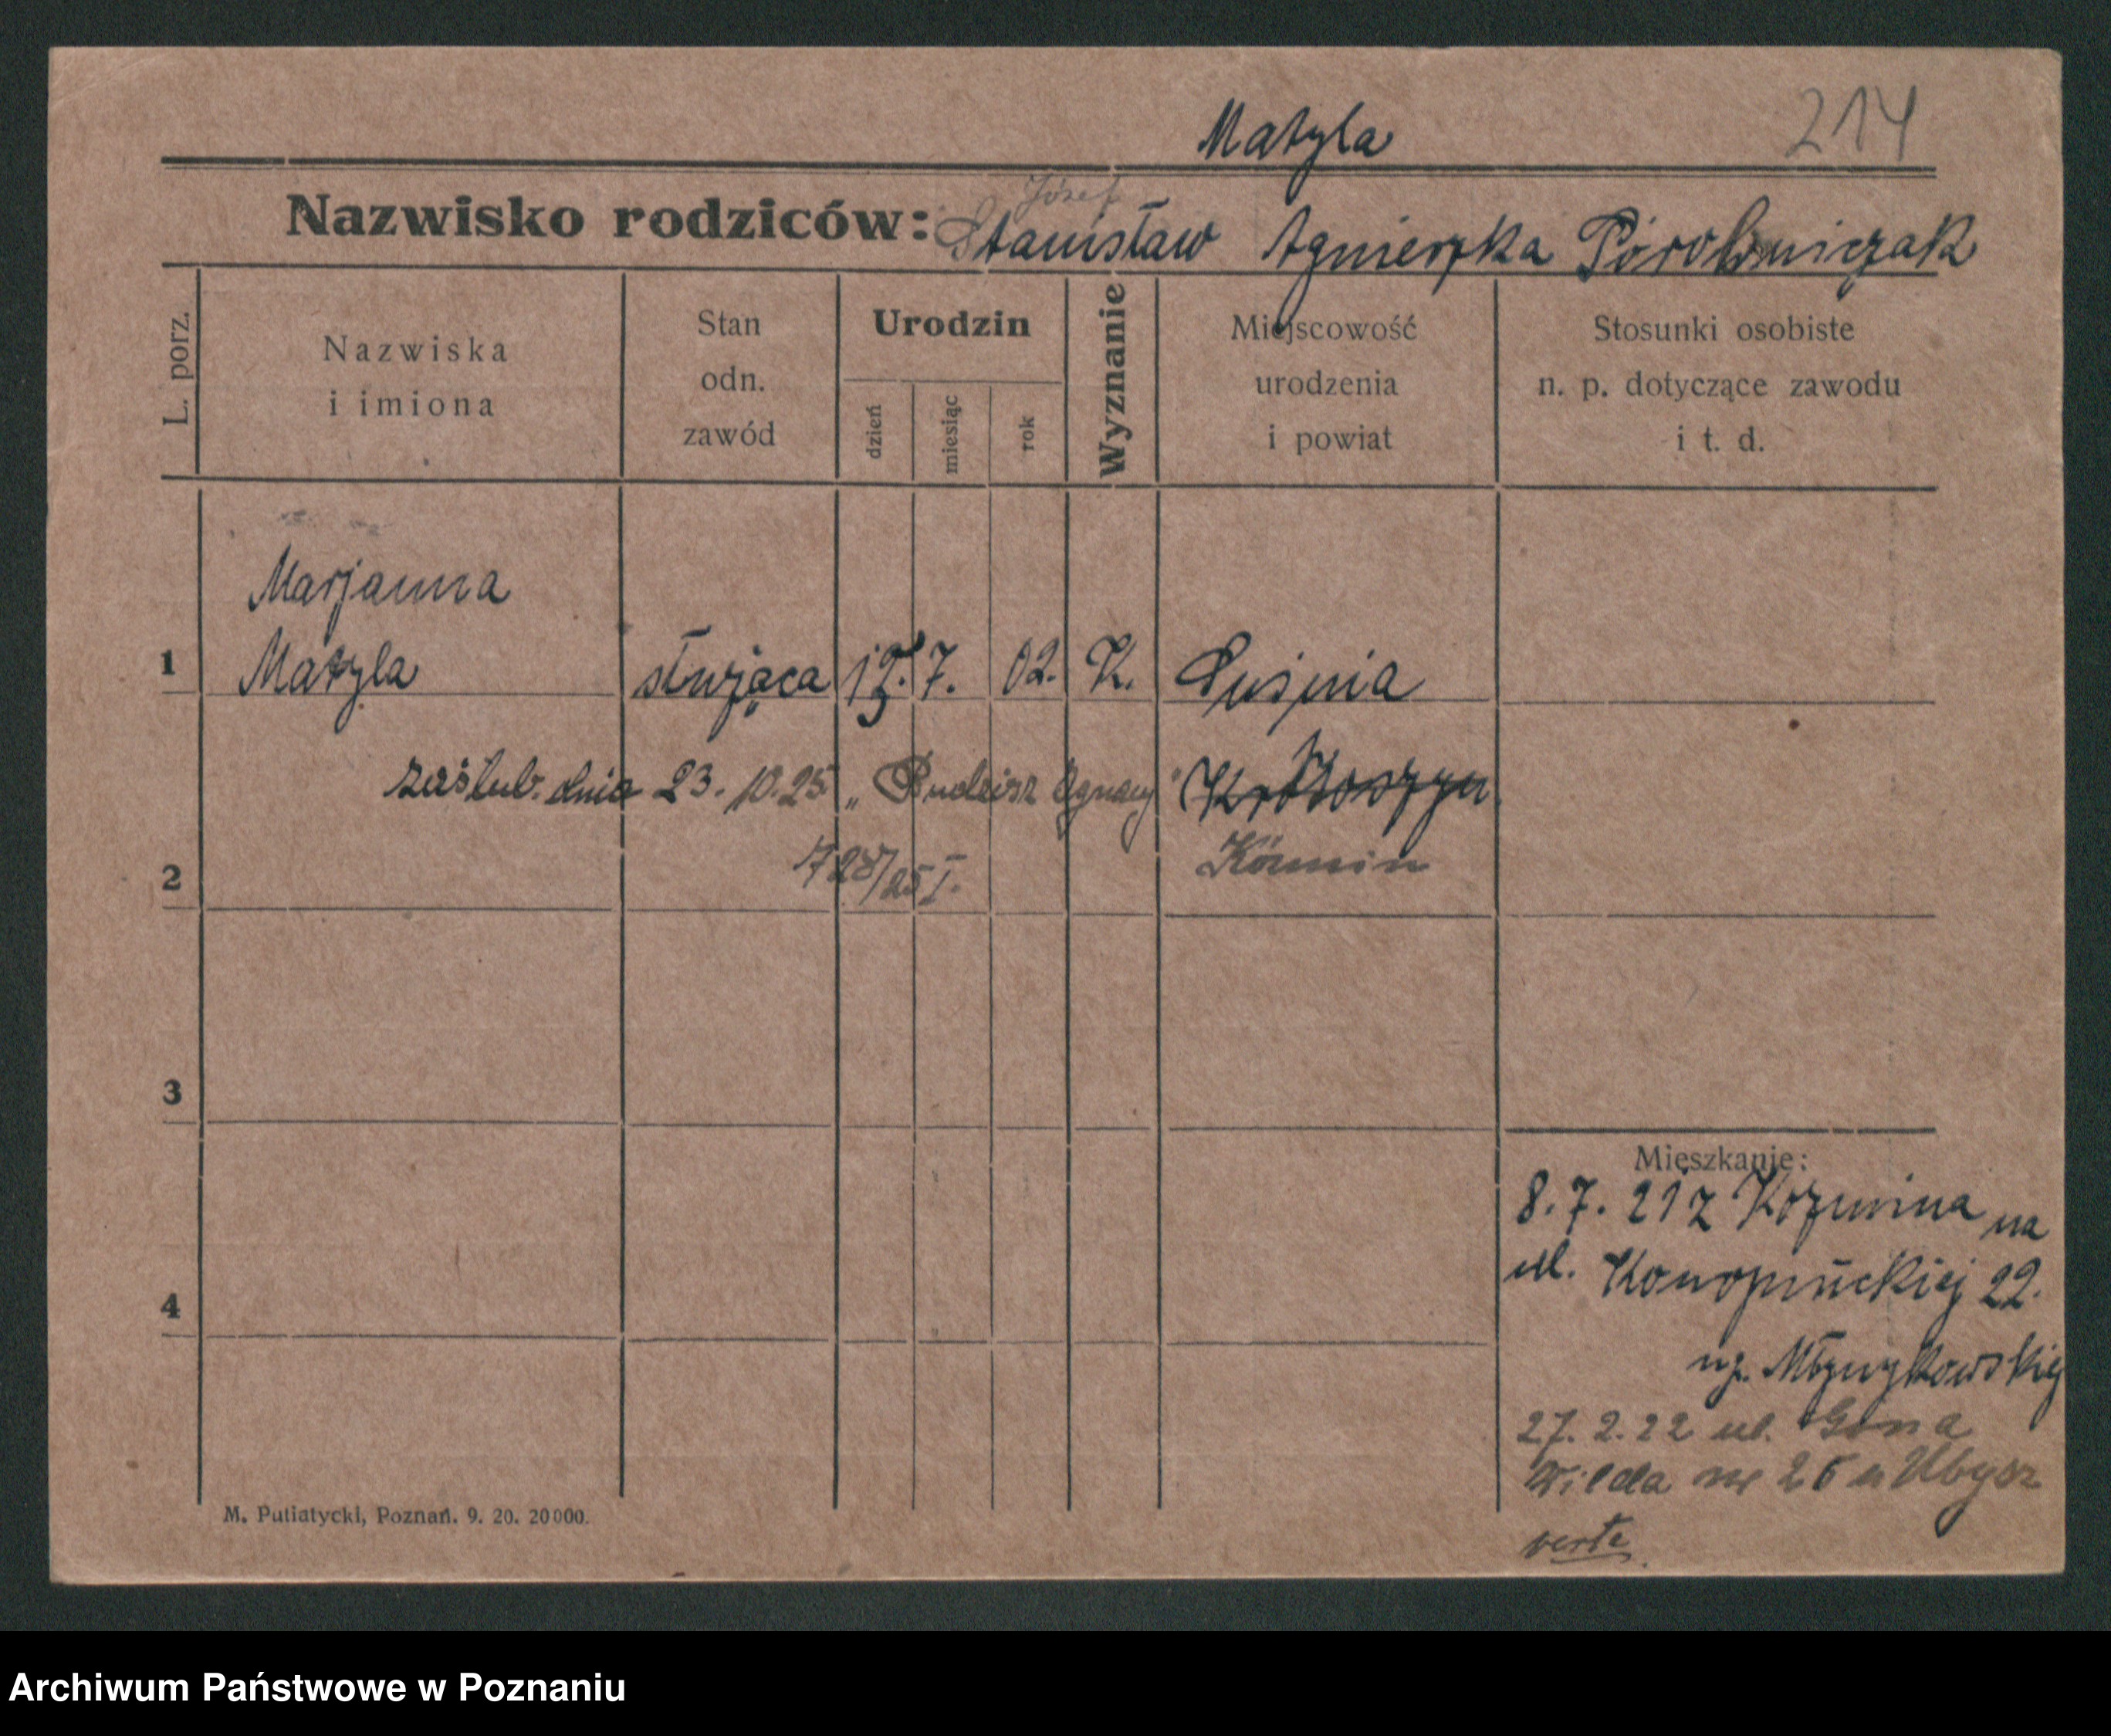 Matyla
214
Józef
Nazwisko rodziców: Stanisław Agnieszka
L. porz.
Nazwiska
i imiona
Stan
odn.
zawód
Urodzin
dzień
miesiąc
rok
Wyznanie
Miejscowość
urodzenia
i powiat
Stosunki osobiste
n. p. dotyczące zawodu
i t. d.
Marjanna
1 Matyla służąca 7. 02. K.
zaślub. dnia 23. 10. 25 Ignacy Krotoszyn
2 728/25 I. Koźmin
3
Mieszkanie:
8. 7. 21 z Kozmina na
4 ul. Konopnickiej 22.
27. 2. 22 ul. Górna
Wilda nr 26 u
verte
M. Putiatycki, Poznań. 9. 20. 20000.
Archiwum Państwowe w Poznaniu